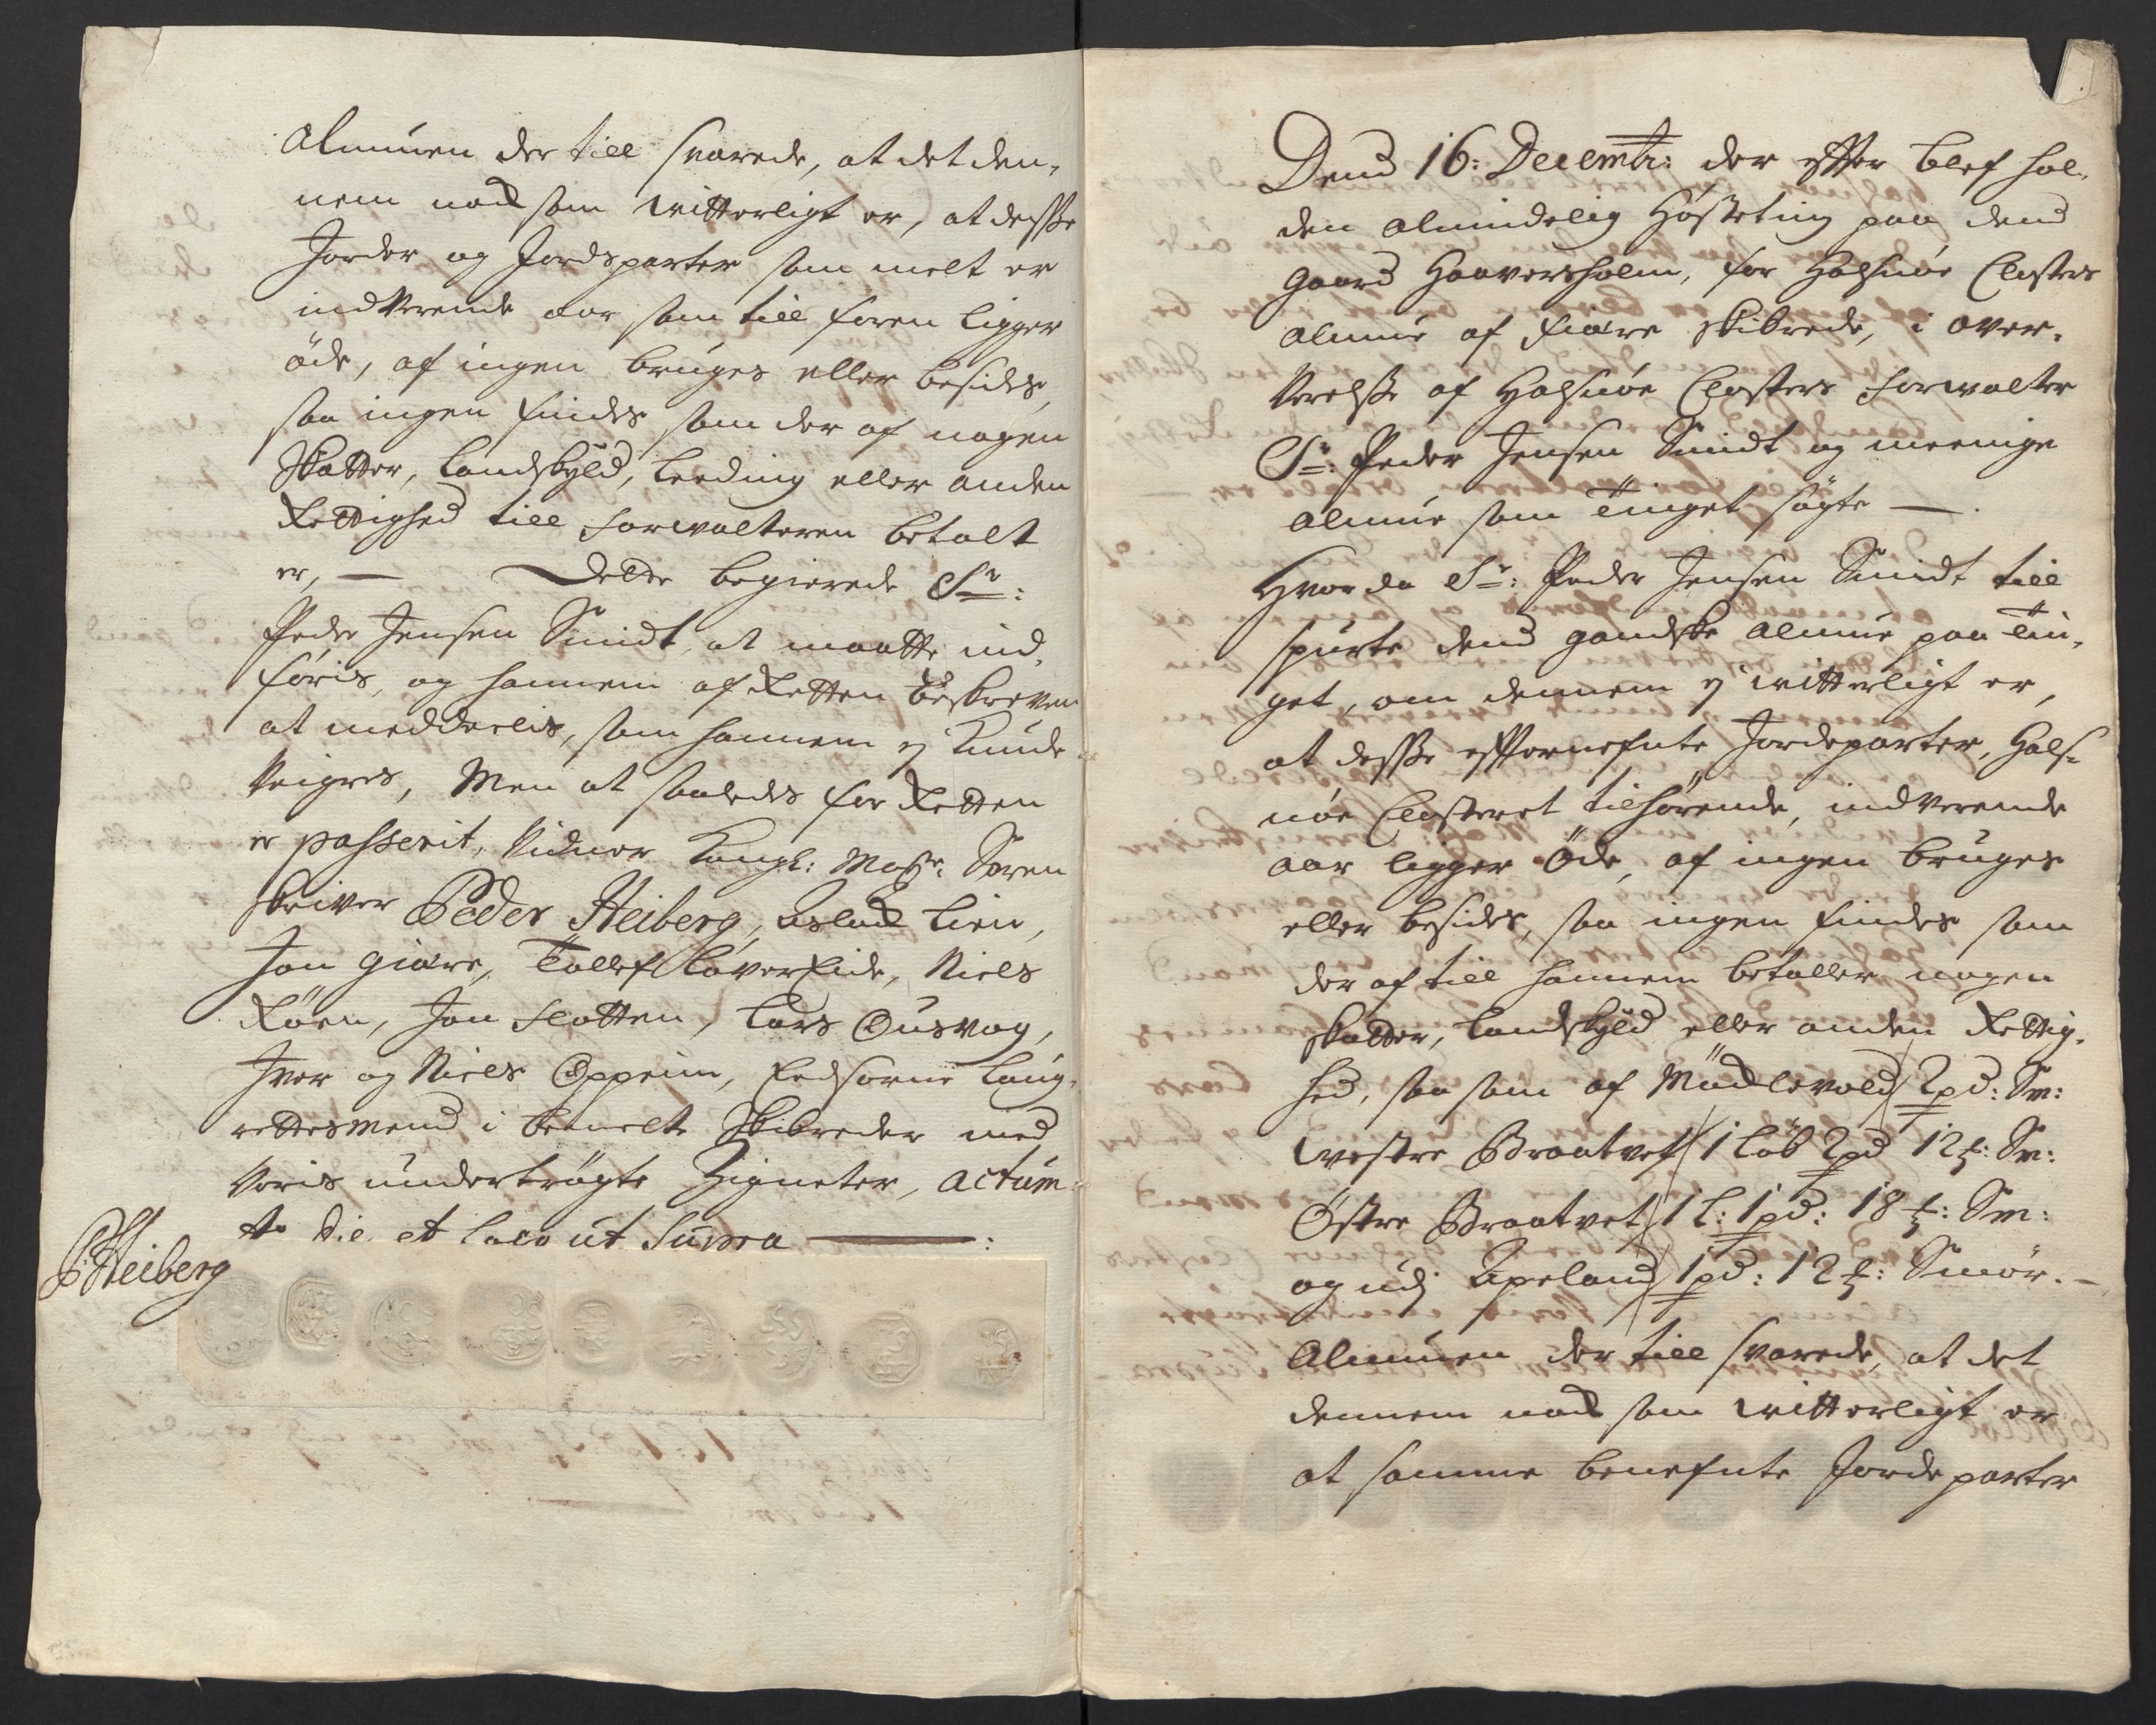 Almuen der till svarede, at det den,
nem nock som witterligt er, at desse
Jorder og Jordsparter som melt er
indverende aar som till foren ligger
öde, af ingen bruges eller besides,
saa ingen findes som der af nogen
Skatter, Landskyld, Leeding eller anden
Rettighed till forwalteren betalt
er, — Dette begierede Sr:
Peder Jensen Smidt, at maatte ind,
föris, og hannem af Retten beskreven
at meddeelis, som hannem ej kunde
Veigres, Men at saaledes for Retten
er passerit, Vidner Kongl: Mayts: Soren
skriver Peder Heiberg, Aslack Lien,
Jon Giære, Tollef Löver Eide, Niels
Röen, Jon Flatten, Lars Ousvog,
Iver og Niels Oppeim, Eedsorne Laug,
rettesmend i bemelte Skibreder med
Voris undertrögte Zigneter, Actum
die et loco ut Supra — :
PHeiberg
Dend 16: Decembr: der efter blef hol,
den almindelig Hösteting paa dend
gaard Haaversholm, for Halsnöe Closters
almue af Fiære Skibrede, i over,
Verelse af Halsnöe Closters forwalter
Sr: Peder Jensen Smidt og meenige
almue som Tinget sögte — .
Hvor da Sr: Peder Jensen Smidt till
spurte dend gandske almue paa Tin,
get, om dennem ej witterligt er,
at desse effternefnte Jordeparter, Hals=
nöe Closteret tilhörende, indverende
aar ligger Öde, af ingen bruges
eller besides, saa ingen findes som
der af till hannem betaller nogen
skatter, Landskyld eller anden Rettig,
hed, saa som af Mücklevold 2 pd: Sm:
westre Braatvet 1 Löb 2 pd 12 ℔: Sm:
Östre Braatvet 1 L: 1 pd: 18 ℔: Sm:
og udj Apeland 1 pd: 12 ℔: Smör. —
Almuen der till svarede, at det
dennem nock som witterligt er
at samme benefnte Jordeparter